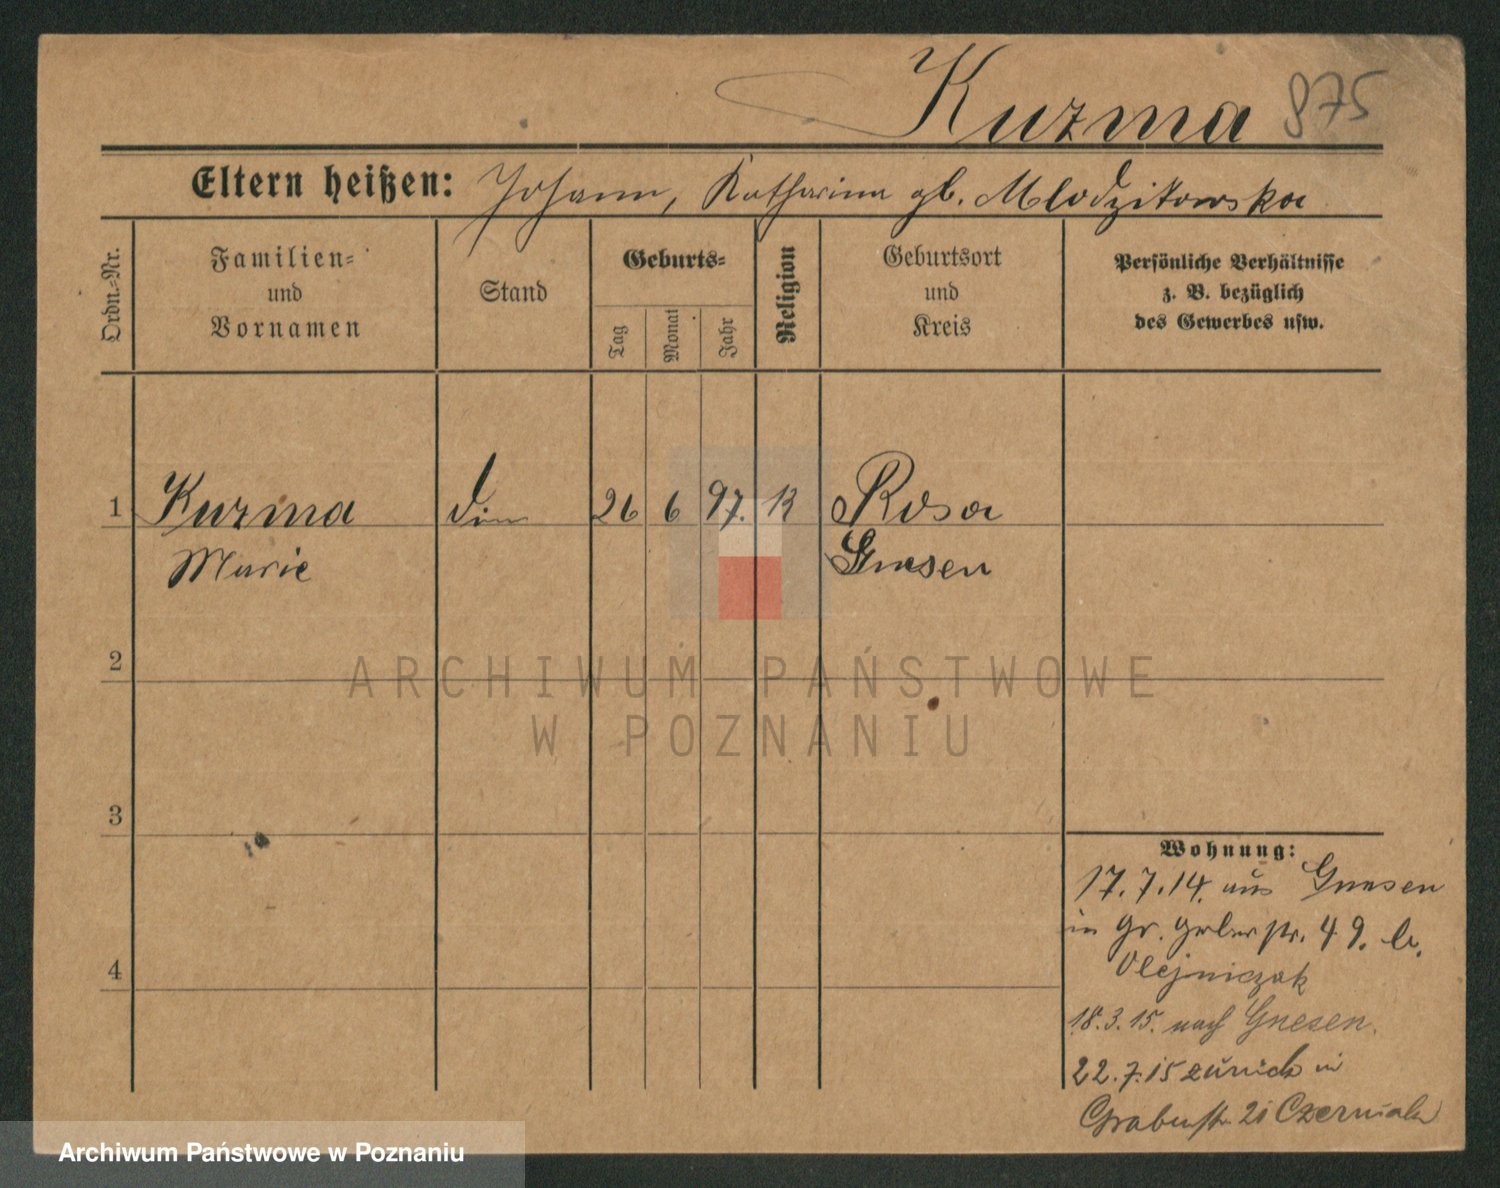 Kuzma 875
Eltern heißen: Johann, Katharina gb. Mlodzikowska
Ordn.-Nr.
Familien-
und
Vornamen
Stand
Geburts-
Tag
Monat
Jahr
Religion
Geburtsort
und
Kreis
Persönliche Verhältnisse
z. B. bezüglich
des Gewerbes usw.
1 Kuzma 26 6 97. K Rosa
Marie Gnesen
2
ARCHIWUM PAŃSTWOWE
W POZNANIU
3
4
Wohnung:
17.7.14. aus Gnesen
in Gr. Gerberstr. 49. b.
Olejniczak
18.3.15. nach Gnesen.
22.7.15 zurück in
Grabenstr. Czerniak
Archiwum Państwowe w Poznaniu